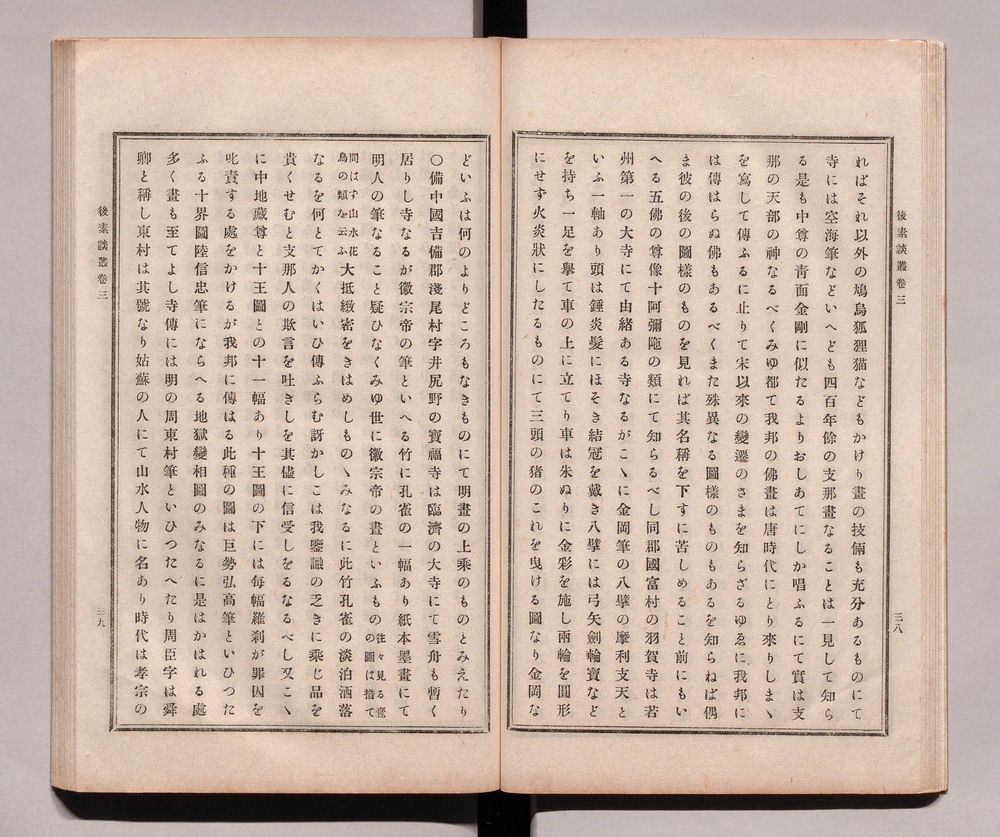 後素談叢卷三
三八
ればそれ以外の鳩烏狐狸猫などもかけり畫の技倆も充分あるものにて
寺には空海筆などいへども四百年餘の支那畫なることは一見して知ら
る是も中尊の靑面金剛に似たるよりおしあてにしか唱ふるにて實は支
那の天部の神なるべくみゆ都て我邦の佛畫は唐時代にとり來りしまゝ
を寫して傳ふるに止りて宋以來の變遷のさまを知らざるゆゑに我邦に
は傳はらぬ佛もあるべくまた殊異なる圖樣のものもあるを知らねば偶
ま彼の後の圖樣のものを見れば其名稱を下すに苦しめること前にもい
へる五佛の尊像十阿彌陁の類にて知らるべし同郡國富村の羽賀寺は若
州第一の大寺にて由緖ある寺なるがこゝに金岡筆の八擘の摩利支天と
いふ一軸あり頭は錘炎髮にはそき結冠を戴き八擘には弓矢劍輪寶など
を持ち一足を擧て車の上に立てり車は朱ぬりに金彩を施し兩輪を圓形
にせず火炎狀にしたるものにて三頭の猪のこれを曳ける圖なり金岡な
どいふは何のよりどころもなきものにて明畫の上乘のものとみえたり
〇備中國吉備郡淺尾村字井尻野の寶福寺は臨濟の大寺にて雪舟も暫く
居りし寺なるが徽宗帝の筆といへる竹に孔雀の一幅あり紙本墨畫にて
明人の筆なること疑ひなくみゆ世に徽宗帝の畫といふもの往々見る鷹の圖は措て
問はず山水花鳥の類を云ふ大抵緻密をきはめしものゝみなるに此竹孔雀の淡泊洒落
なるを何とてかくはいひ傳ふらむ訝かしこは我鑒識の乏きに乘じ品を
貴くせむと支那人の欺言を吐きしを其儘に信受しをるなるべし又こゝ
に中地藏尊と十王圖との十一幅あり十王圖の下には每幅羅刹が罪囚を
叱責する處をかけるが我邦に傳はる此種の圖は巨勢弘高筆といひつた
ふる十界圖陸信忠筆にならへる地獄變相圖のみなるに是はかはれる處
多く畫も至てよし寺傳には明の周東村筆といひつたへたり周臣字は舜
卿と稱し東村は其號なり姑蘇の人にて山水人物に名あり時代は孝宗の
後素談叢卷三
三九